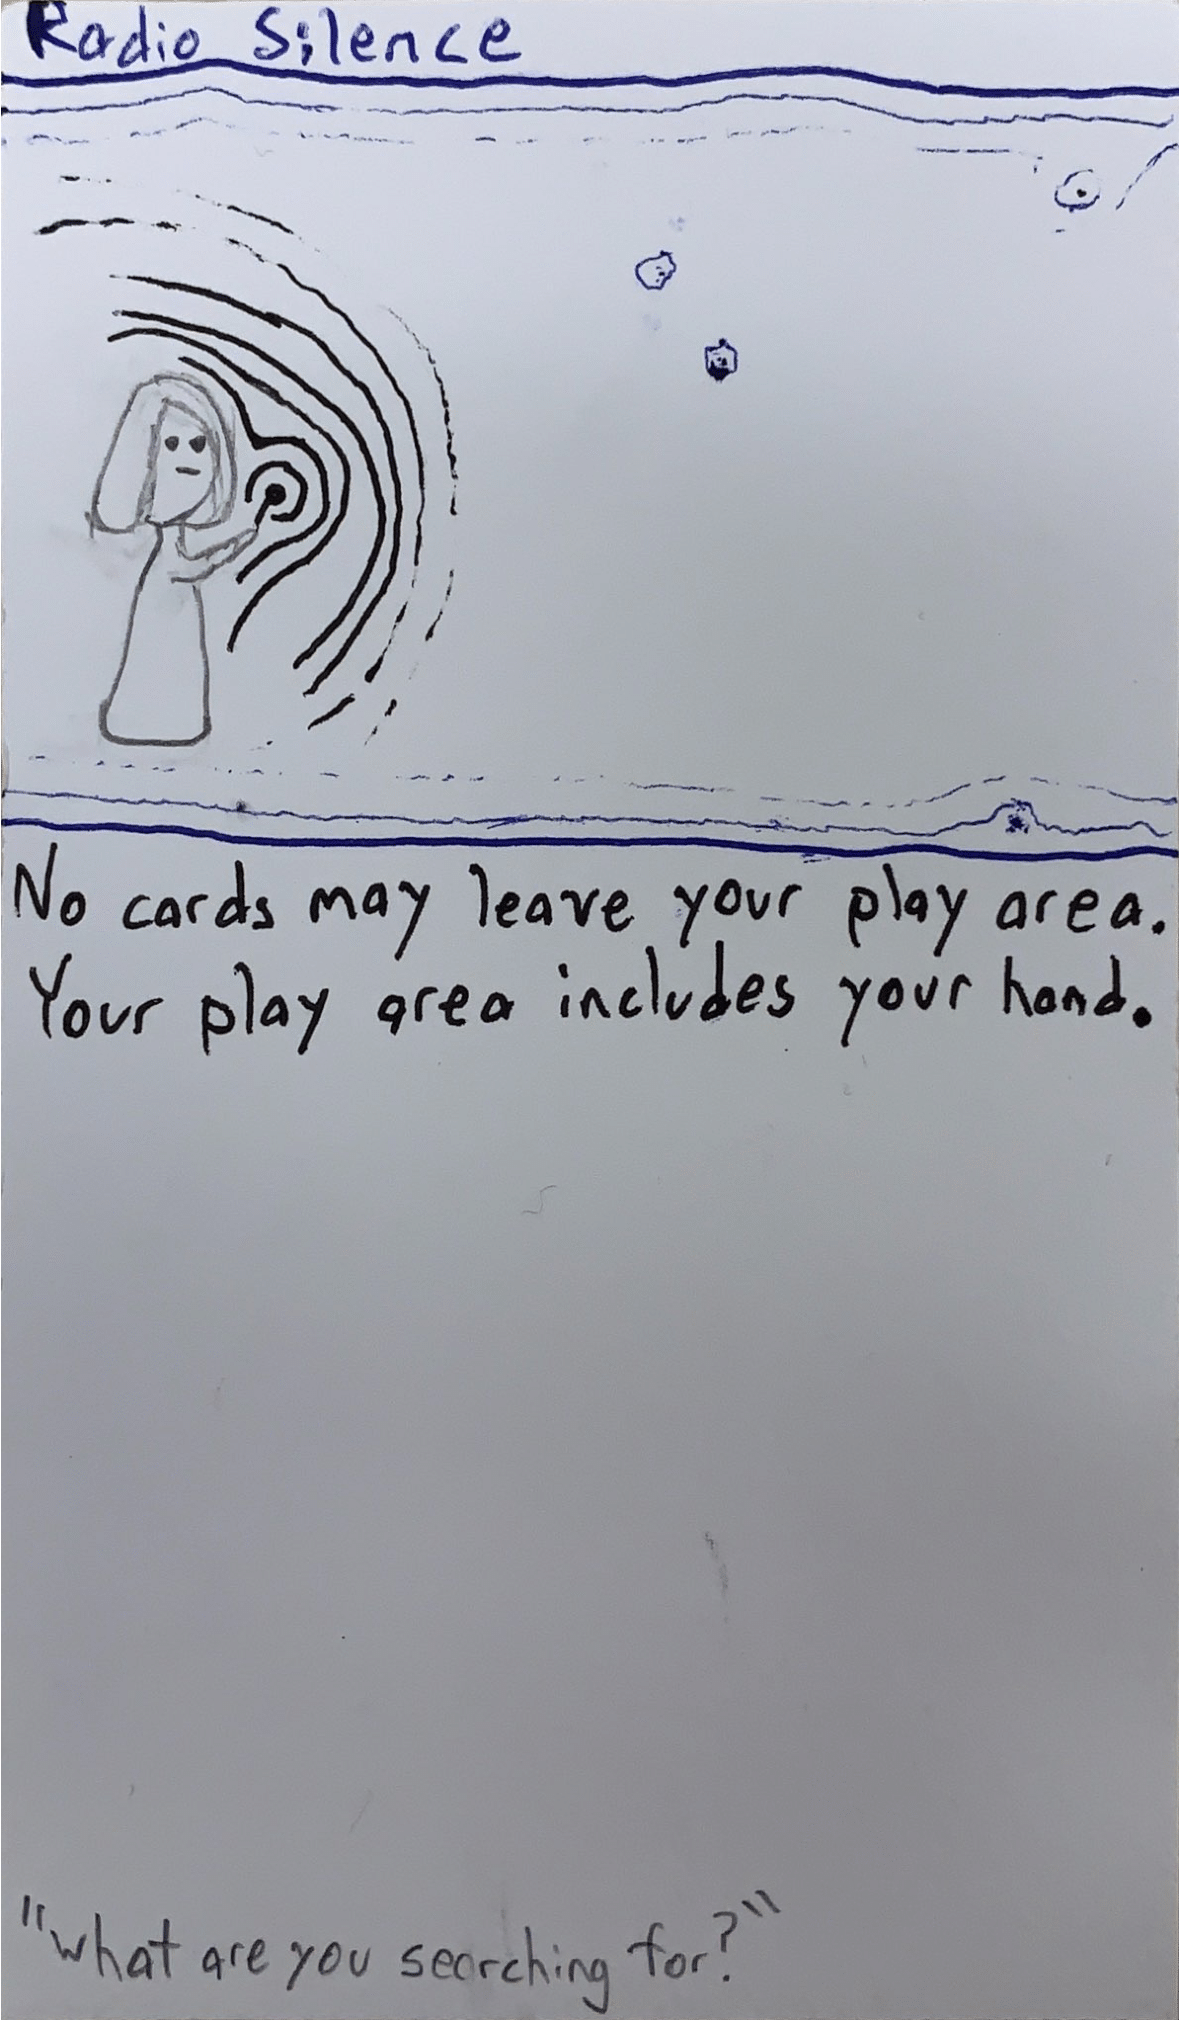 Radio Silence
No cards may leave your play area.
Your play area includes your hand.
"what are you searching for?"